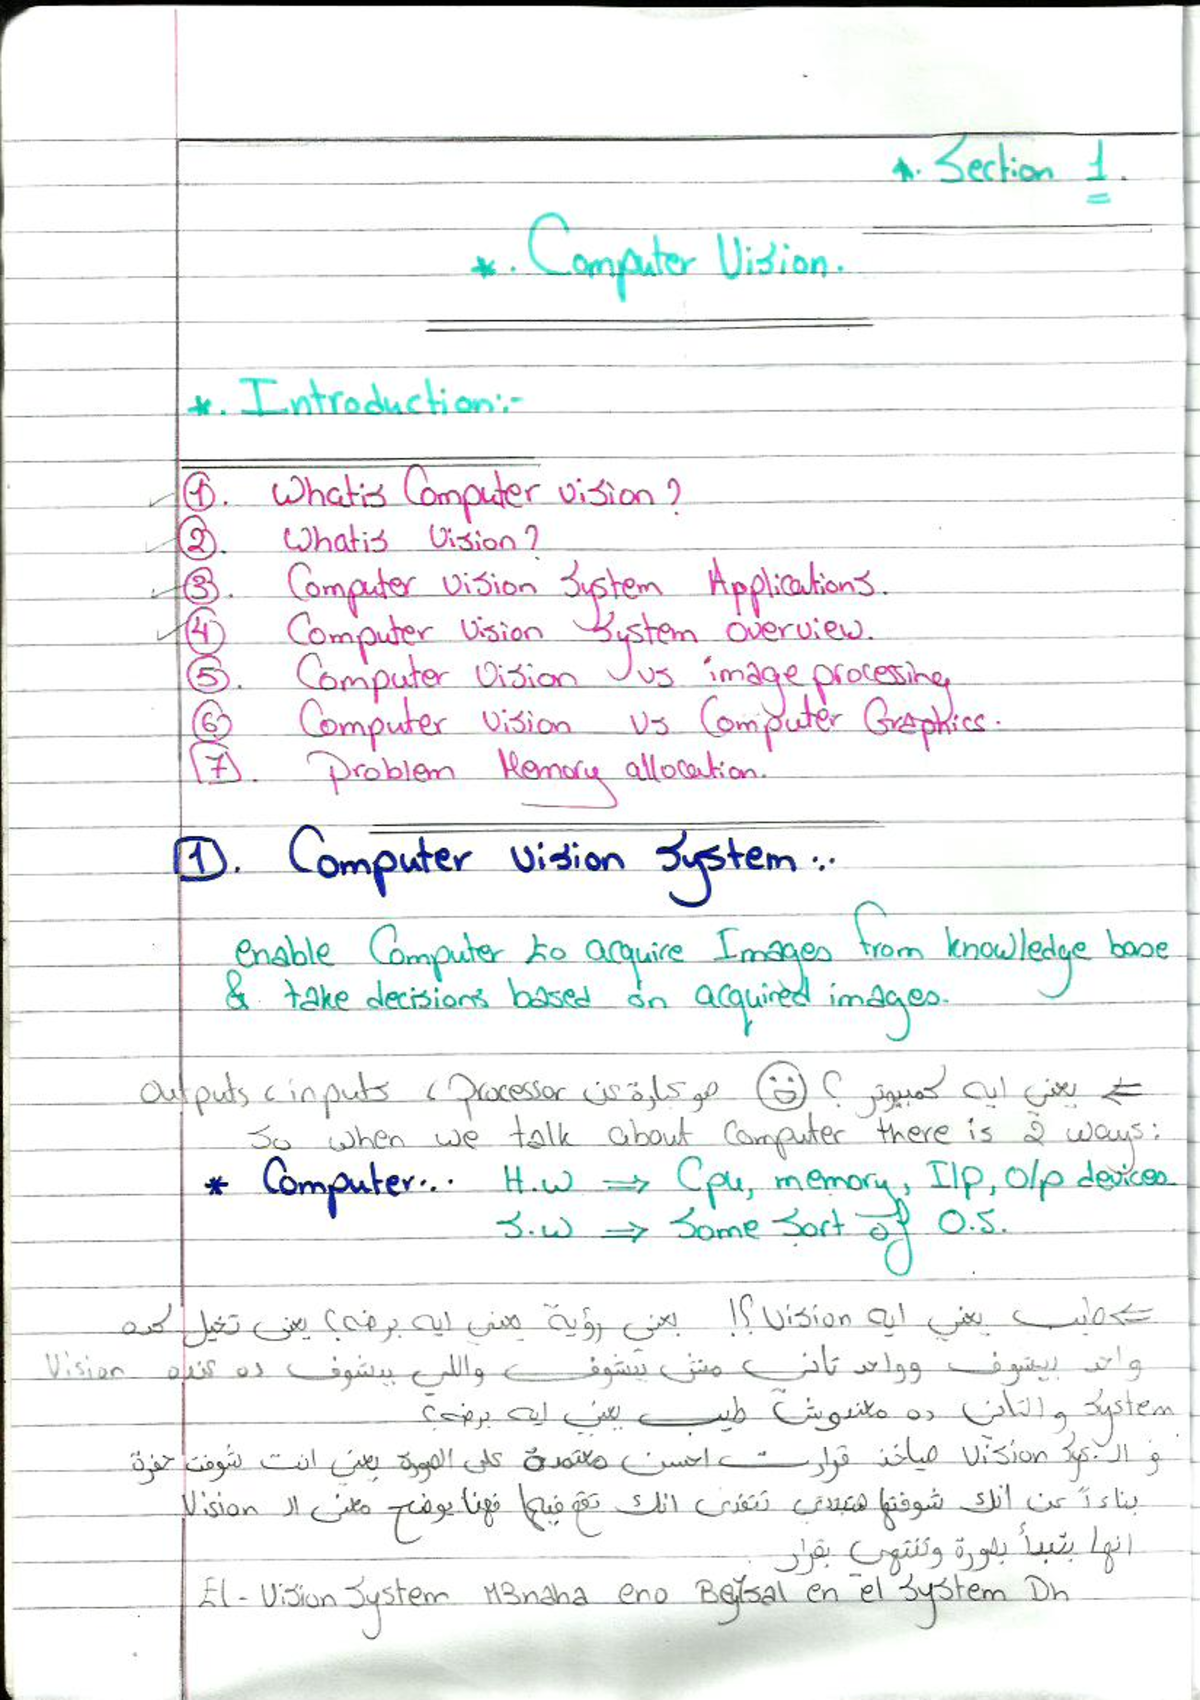 *. Section 1.
*. Computer Vision.
*. Introduction:-
1. What is Computer vision?
2. What is Vision?
3. Computer vision System Applications.
4. Computer Vision System overview.
5. Computer Vision vs image processing
6. Computer vision vs Computer Graphics.
7. Problem Memory allocation.
1. Computer vision System:.
enable Computer to acquire Images from knowledge base
& take decisions based on acquired images.
⇐ يعني ايه كمبيوتر؟ هو عبارة عن processor ، inputs ، outputs
So when we talk about Computer there is 2 ways:
* Computer... H.w ⇒ Cpu, memory, I/p, O/p devices
S.w ⇒ Some Sort of O.S.
⇐ طيب يعني ايه Vision ؟! يعني رؤية يعني ايه برضه؟ يعني تخيل كده
واحد بيشوف وواحد تاني مش بيشوف واللي بيشوف ده عنده Vision
System والتاني ده معندوش طيب يعني ايه برضه؟
و الـ Vision Sys. هياخد قرارت احسن معتمدة على الصورة يعني انت شوفت حفرة
بناءاً عن انك شوفتها هتبدي تتفدى انك تقع فيها فهنا يوضح معنى الـ Vision
انها بتبدأ بصورة وتنتهي بقرار.
El-Vision System M3naha eno en el System Dh